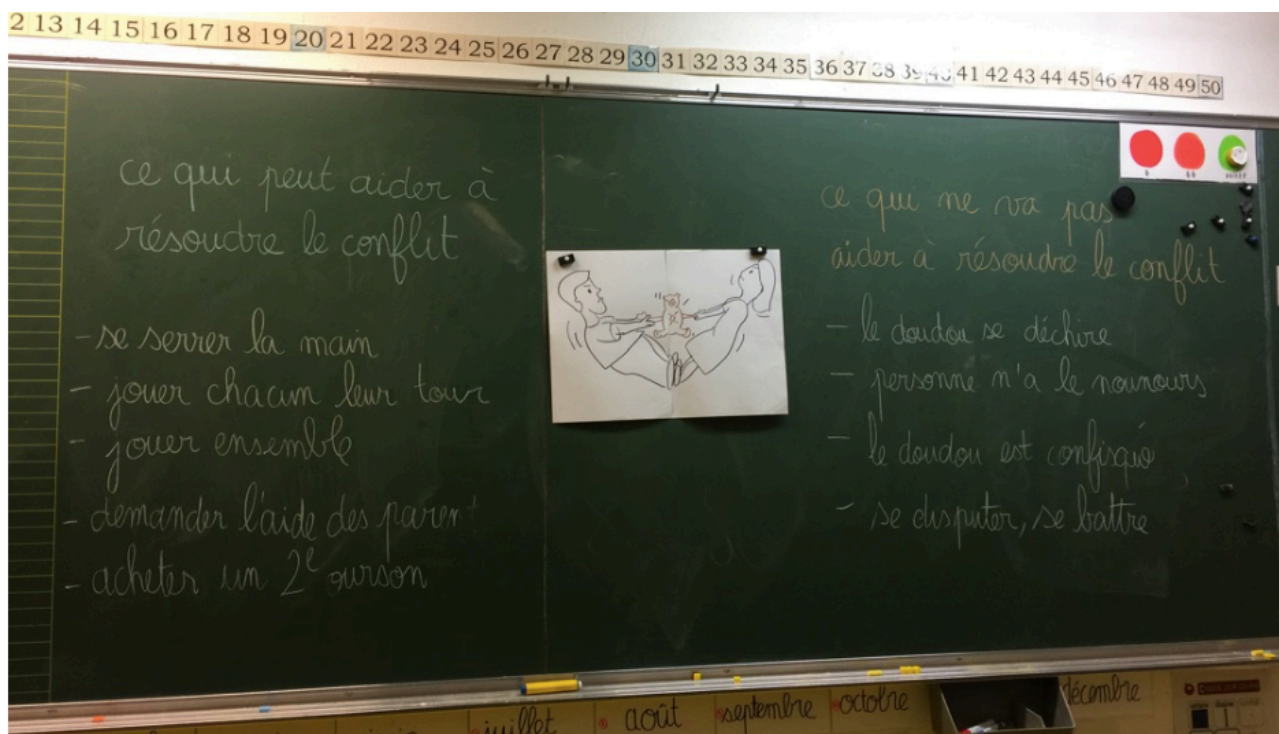 2 13 14 15 16 17 18 19 20 21 22 23 24 25 26 27 28 29 30 31 32 33 34 35 36 37 38 39 40 41 42 43 44 45 46 47 48 49 50
ce qui peut aider à
résoudre le conflit
- se serrer la main
- jouer chacun leur tour
- jouer ensemble
- demander l'aide des parent
- acheter un 2e ourson
ce qui ne va pas
aider à résoudre le conflit
- le doudou se déchire
- personne n'a le nounours
- le doudou est confisqué
- se disputer, se battre
juillet août septembre octobre décembre